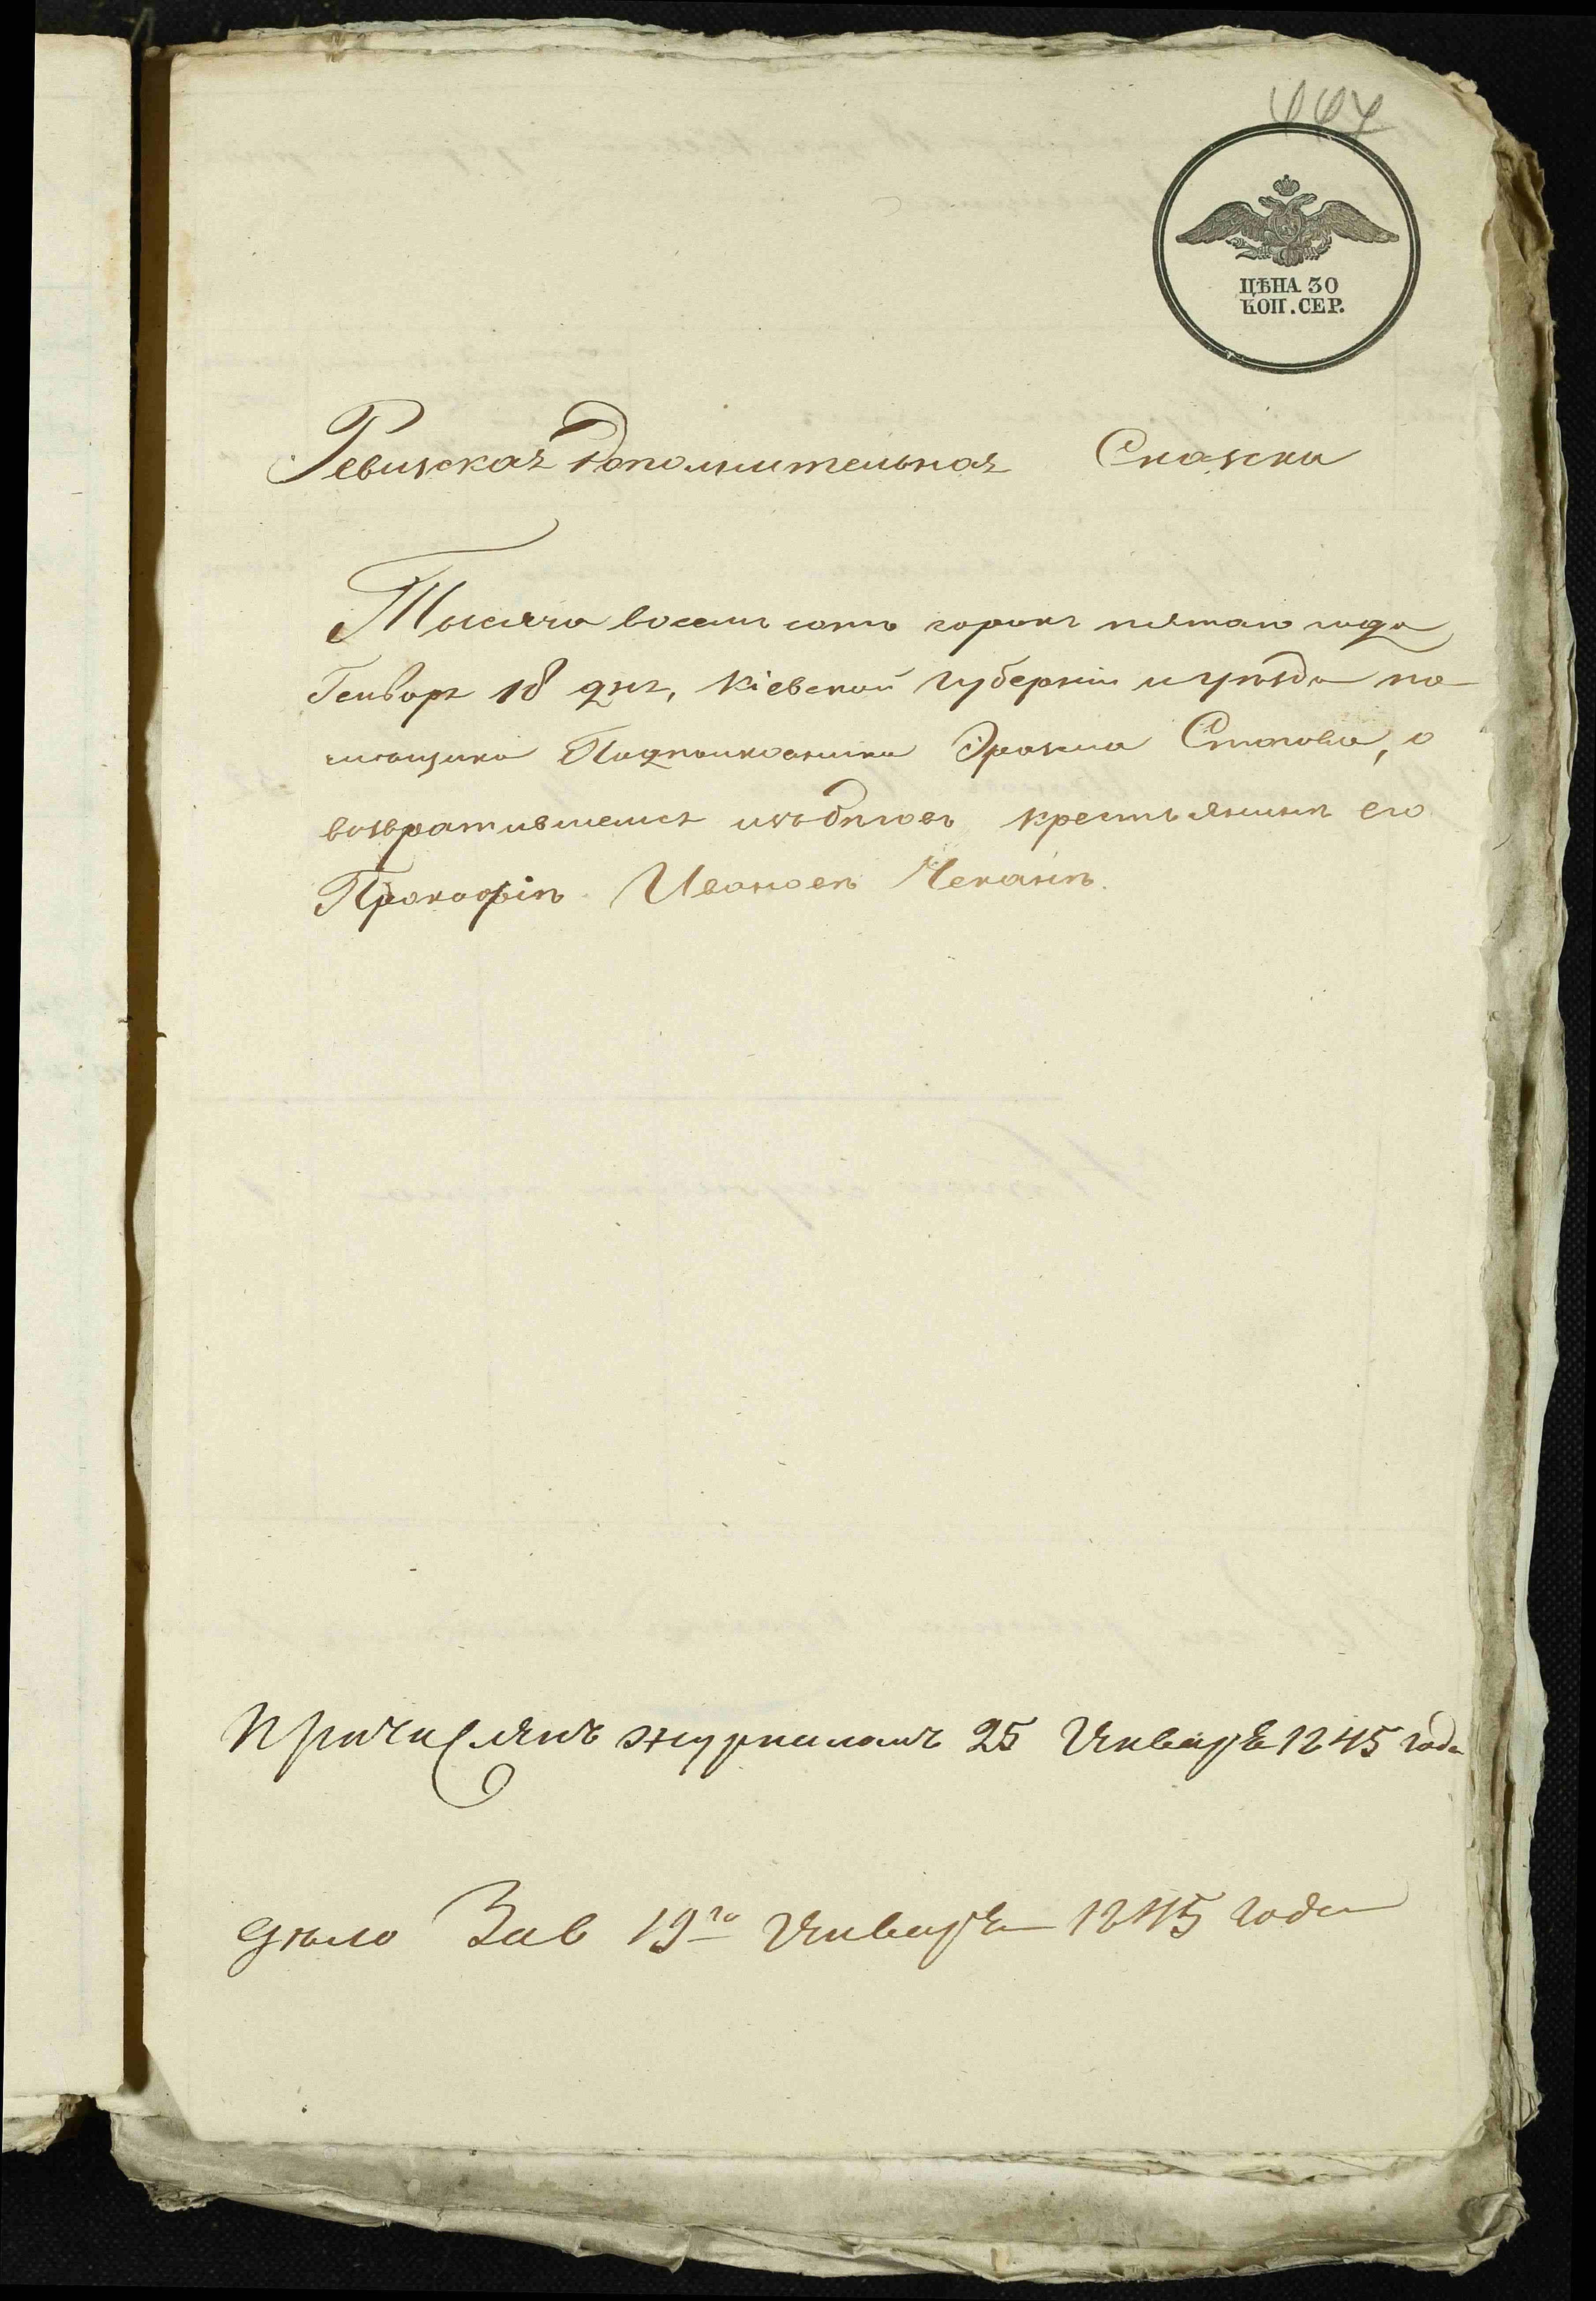 ЦѢНА 30
КОП. СЕР.
Ревизская дополнительная Сказка
Тысяча восемь сотъ сорокъ пятаго года
Генваря 18 дня, Кіевской Губерніи и уѣзда по-
мѣщика Подполковника Эразма Стопова, о
возвратившемся изъ бѣговъ крестьянинѣ его
Прокофіѣ Ивановѣ Чеканѣ.
Причисленъ журналомъ 25 Января 1845 года
дѣло Зав 19го Января 1845 года